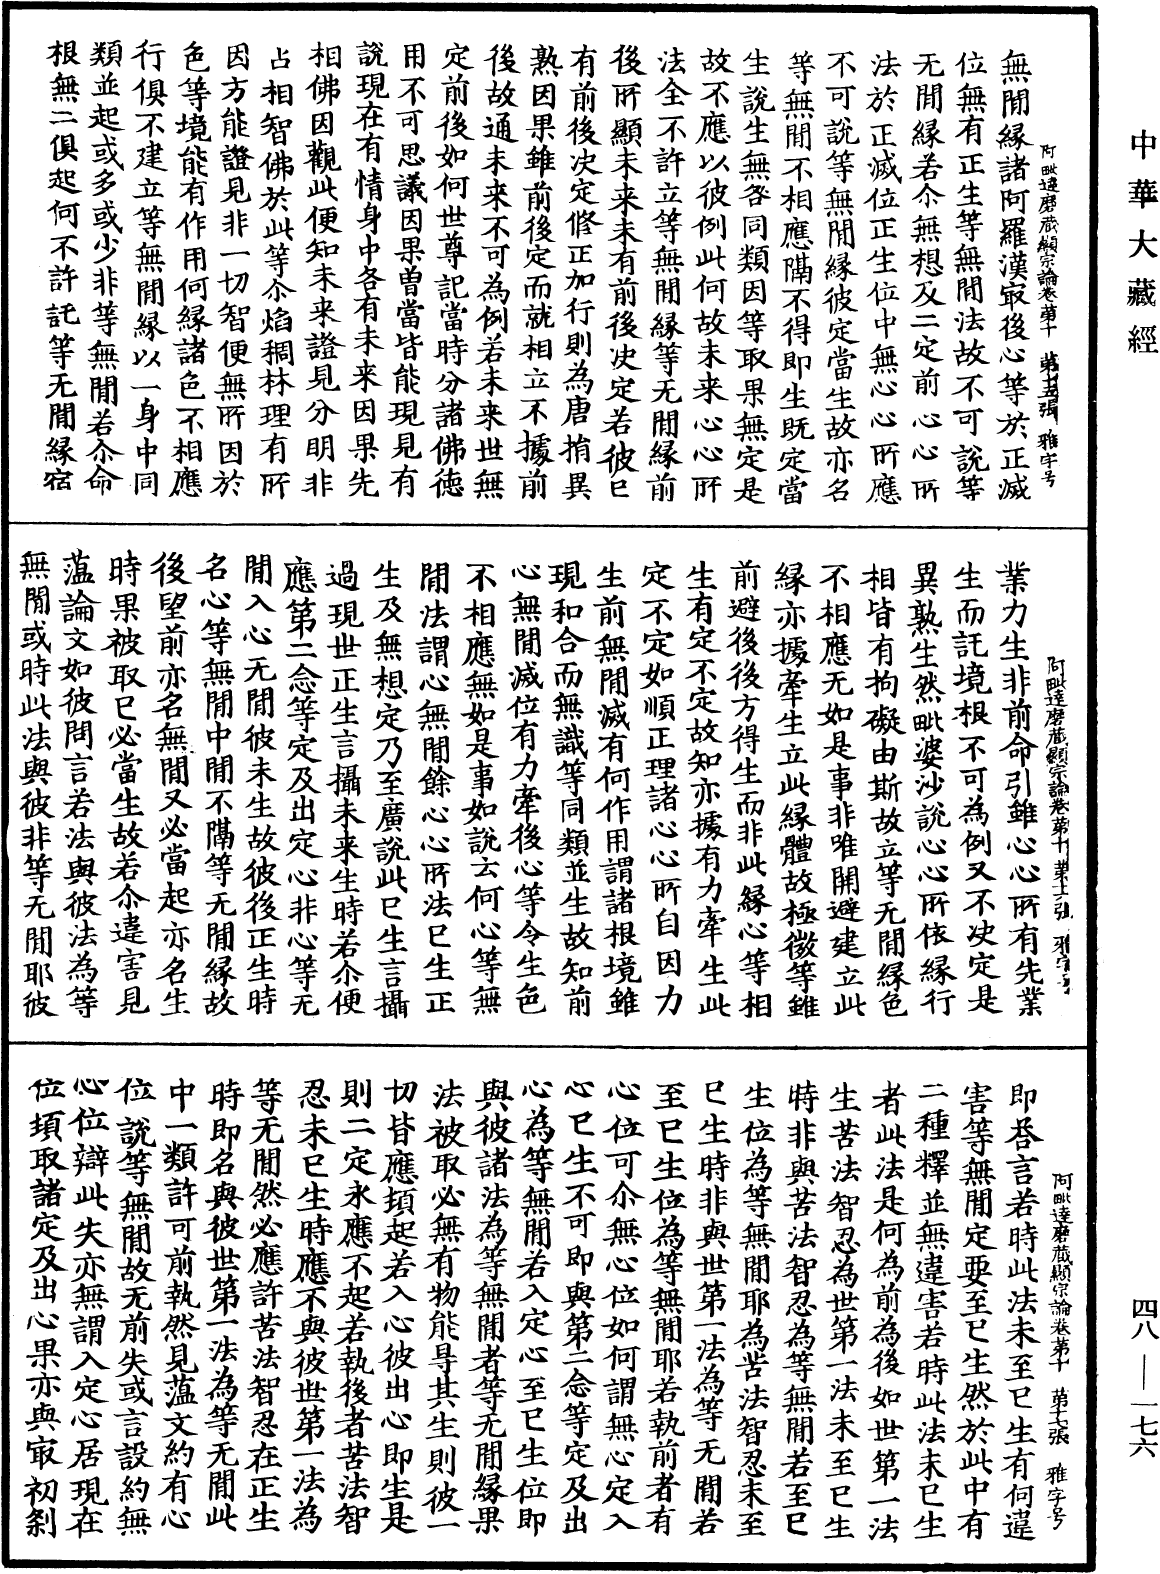 中華大藏經
四八—一七六
阿毗達磨藏顯宗論卷第十 第十五張 雅字号
無閒緣諸阿羅漢㝡後心等於正滅
位無有正生等無閒法故不可說等
无閒緣若尒無想及二定前心心所
法於正滅位正生位中無心心所應
不可說等無閒緣彼定當生故亦名
等無閒不相應隔不得即生既定當
生說生無各同類因等取果無定是
故不應以彼例此何故未来心心所
法全不許立等無閒緣等无閒緣前
後所顯未来未有前後决定若彼已
有前後决定修正加行則為唐捐異
熟因果雖前後定而就相立不據前
後故通未来不可為例若未来世無
定前後如何世尊記當時分諸佛德
用不可思議因果曽當皆能現見有
說現在有情身中各有未来因果先
相佛因觀此便知未来證見分明非
占相智佛於此等尒焰稠林理有所
因方能證見非一切智便無所因於
色等境能有作用何緣諸色不相應
行俱不建立等無閒緣以一身中同
類並起或多或少非等無閒若尒命
根無二俱起何不許託等无閒緣宿
阿毗達磨藏顯宗論卷第十 第十六張 雅字号
業力生非前命引雖心心所有先業
生而託境根不可為例又不决定是
異熟生然毗婆沙說心心所依緣行
相皆有拘礙由斯故立等无閒緣色
不相應无如是事非唯開避建立此
緣亦據牽生立此緣體故極微等雖
前避後後方得生而非此緣心等相
生有定不定故知亦據有力牽生此
定不定如順正理諸心心所自因力
生前無閒滅有何作用謂諸根境雖
現和合而無識等同類並生故知前
心無閒滅位有力牽後心等令生色
不相應無如是事如說云何心等無
閒法謂心無閒餘心心所法已生正
生及無想定乃至廣說此已生言攝
過現世正生言攝未来生時若尒便
應第二念等定及出定心非心等无
閒入心无閒彼未生故彼後正生時
名心等無閒中閒不隔等无閒緣故
後望前亦名無閒又必當起亦名生
時果被取已必當生故若尒違害見
薀論文如彼問言若法與彼法為等
無閒或時此法與彼非等无閒耶彼
阿毗達磨藏顯宗論卷第十 第十七張 雅字号
即荅言若時此法未至已生有何違
害等無閒定要至已生然於此中有
二種釋並無違害若時此法未已生
者此法是何為前為後如世第一法
生苦法智忍為世第一法未至已生
時非與苦法智忍為等無閒若至已
生位為等無閒耶為苦法智忍未至
已生時非與世第一法為等无閒若
至已生位為等無閒耶若執前者有
心位可尒無心位如何謂無心定入
心已生不可即與第二念等定及出
心為等無閒若入定心至已生位即
與彼諸法為等無閒者等无閒緣果
法被取必無有物能㝵其生則彼一
切皆應頓起若入心彼出心即生是
則二定永應不起若執後者苦法智
忍未已生時應不與彼世第一法為
等无閒然必應許苦法智忍在正生
時即名與彼世第一法為等无閒此
中一類許可前執然見薀文約有心
位說等無閒故无前失或言設約無
心位辯此失亦無謂入定心居現在
位頓取諸定及出心果亦與㝡初刹